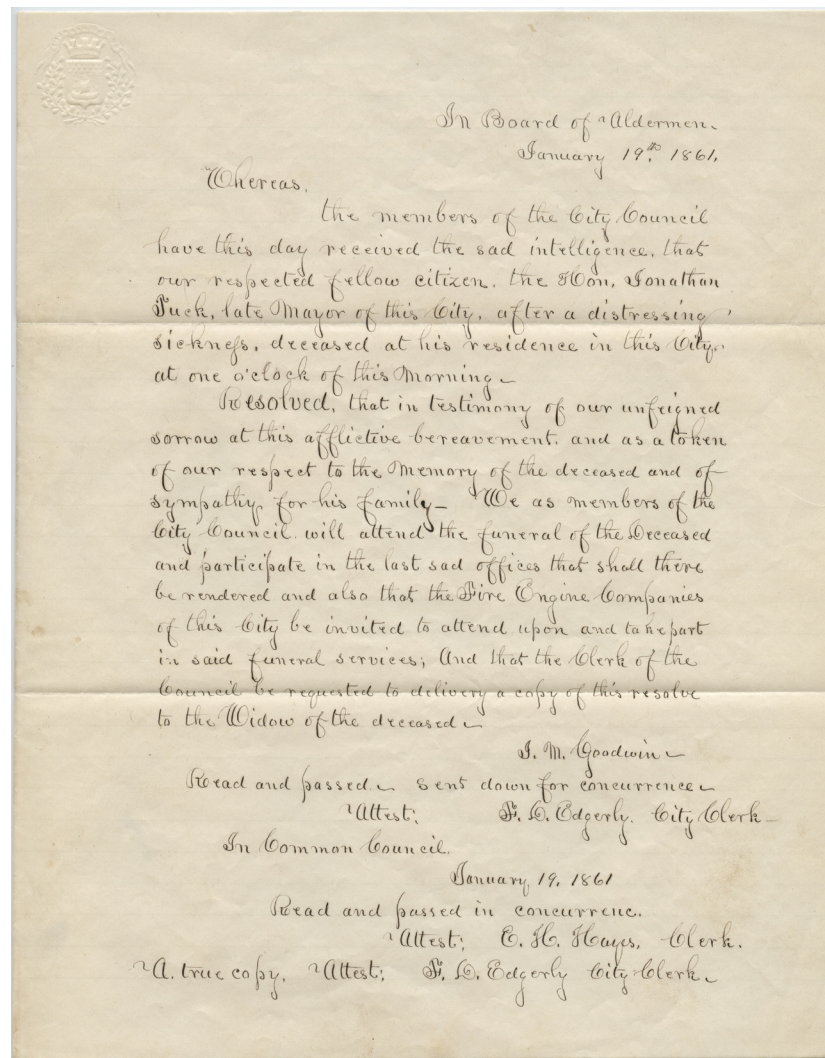 In Board of Aldermen.
January 19th, 1861.
Whereas,
the members of the City Council
have this day received the sad intelligence, that
our respected fellow citizen, the Hon, Jonathan
Tuck, late Mayor of this City, after a distressing
sickness, deceased at his residence in this City,
at one o'clock of this Morning
Resolved, that in testimony of our unfeigned
sorrow at this afflictive bereavement, and as a token
of our respect to the Memory of the deceased and of
sympathy for his family— We as members of the
City Council, will attend the funeral of the Deceased
and participate in the last sad offices that shall there
be rendered and also that the Fire Engine Companies
of this City be invited to attend upon and take part
in said funeral services; And that the Clerk of the
Council be requested to delivery a copy of this resolve
to the Widow of the deceased
J. M. Goodwin
Read and passed. Sent down for concurrence
Attest; F. D. Edgerly. City Clerk—
In Common Council.
January, 19, 1861
Read and passed in concurrenc.
Attest; E. H. Hayes, Clerk.
A. true copy, Attest; F. D. Edgerly City Clerk